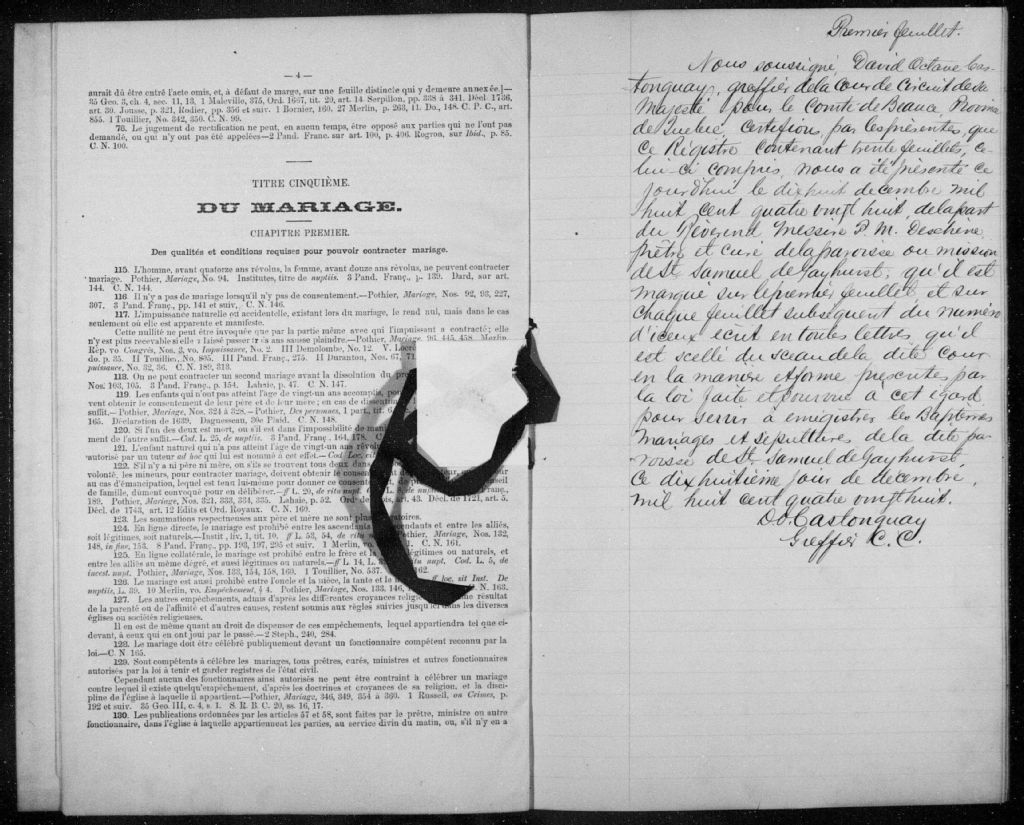 — 4 —
aurait dû être entré l'acte omis, et, à défaut de marge, sur une feuille distincte qui y demeure annexée.]—
35 Geo. 3, ch. 4, sec. 11, 13. 1 Maleville, 375, Ord. 1667, tit. 20, art. 14 Serpillon, pp. 338 à 341. Décl. 1736,
art. 30. Jousse, p. 321, Rodier, pp. 356 et suiv. 1 Bornier, 160. 27 Merlin, p. 263, 11. Do, 148. C. P. C., art.
855. 1 Touillier, No. 342, 350. C. N. 99.
78. Le jugement de rectification ne peut, en aucun temps, être opposé aux parties qui ne l'ont pas
demandé, ou qui n'y ont pas été appelées—2 Pand. Franc. sur art. 100, p. 406. Rogron, sur Ibid., p. 85.
C. N. 100.
TITRE CINQUIÈME.
DU MARIAGE.
CHAPITRE PREMIER.
Des qualités et conditions requises pour pouvoir contracter mariage.
115. L'homme, avant quatorze ans révolus, la femme, avant douze ans révolus, ne peuvent contracter
mariage. Pothier, Mariage, No. 94. Institutes, titre de nuptiis. 3 Pand. Franç., p. 139. Dard, sur art.
144. C. N. 144.
116. Il n'y a pas de mariage lorsqu'il n'y pas de consentement.—Pothier, Mariage, Nos. 92, 93, 227,
307. 3 Pand. Franç., pp. 141 et suiv., C. N. 146.
117. L'impuissance naturelle ou accidentelle, existant lors du mariage, le rend nul, mais dans le cas
seulement où elle est apparente et manifeste.
Cette nullité ne peut être invoquée que par la partie même avec qui l'impuissant a contracté; elle
n'y est plus recevable si elle a laissé passer trois ans sans se plaindre—Pothier, Mariage, 96, 445, 458. Merlin
Rép. vo Congrès, Nos. 3, vo. Impuissance, No. 2. III Demolombe, No. 12. V. Locré
do. p. 35. II Touillier, No. 805. III Pand. Franç., 275. II Duranton, Nos. 67, 71.
puissance, No. 32, 36. C. N. 189, 313.
118. On ne peut contracter un second mariage avant la dissolution du
Nos. 103, 105. 3 Pand. Franç., p. 154. Lahaie, p. 47. C. N. 147.
119. Les enfants qui n'ont pas atteint l'âge de vingt-un ans accomplis, pour
vent obtenir le consentement de leur père et de leur mère; en cas de dissentiment
suffit.— Pothier, Mariage, Nos. 324 à 328.— Pothier, Des personnes, 1 part., tit. 6
165. Déclaration de 1639. Daguesseau, 30e Plaid. C. N. 148.
120. Si l'un des deux est mort, ou s'il est dans l'impossibilité de
ment de l'autre suffit.—Cod. L. 25, de nuptiis. 3 Pand. Franç. 164, 178. C
121. L'enfant naturel qui n'a pas atteint l'âge de vingt-un ans
autorisé par un tuteur ad hoc qui lui est nommé à cet effet.— Cod. Loc. cit
122. S'il n'y a ni père ni mère, ou s'ils se trouvent tous deux dans
volonté, les mineurs, pour contracter mariage, doivent obtenir le
au cas d'émancipation, lequel est tenu lui-même pour donner ce
de famille, dûment convoqué pour en délibérer.—ff L. 20, de ritu nupt.
189. Pothier, Mariage, Nos. 321, 333, 334, 335. Lahaie, p. 52. art. 43. Décl. de 1721, art. 5.
Décl. de 1743, art. 12 Edits et Ord. Royaux. C. N. 160.
123. Les sommations respectueuses aux père et mère ne sont
124. En ligne directe, le mariage est prohibé entre les ascendants et entre les alliés,
soit légitimes, soit naturels.—Instit., liv. 1, tit. 10. ff L. 53, 54, de ritu Pothier, Mariage, Nos. 132,
148, in fine, 153. 8 Pand. Franç., pp. 193, 197, 295 et suiv. 1 Merlin, vo. C. N. 161.
125. En ligne collatérale, le mariage est prohibé entre le frère et légitimes ou naturels, et
entre les alliés au même dégré, et aussi légitimes ou naturels.—ff L. 14, L. ritu nupt. Cod. L. 5, de
incest. nupt. Pothier, Mariage, Nos. 133, 154, 158, 160. 1 Touillier, No. 537. 162.
126. Le mariage est aussi prohibé entre l'oncle et la nièce, la tante et le ff loc. sit Inst. De
nuptiis, L. 39. 10 Merlin, vo. Empêchement, § 4. Pothier, Mariage, Nos. 133, 146, N. 163.
127. Les autres empêchements, admis d'après les différentes croyances me résultat
de la parenté ou de l'affinité et d'autres causes, restent soumis aux règles suivies jusqu'ici dans les diverses
églises ou sociétés religieuses.
Il en est de même quant au droit de dispenser de ces empêchements, lequel appartiendra tel que ci-
devant, à ceux qui en ont joui par le passé.—2 Steph., 240, 284.
128. Le mariage doit être célébré publiquement devant un fonctionnaire compétent reconnu par la
loi.—C. N. 165.
129. Sont compétents à célébre les mariages, tous prêtres, curés, ministres et autres fonctionnaires
autorisés par la loi à tenir et garder registres de l'état civil.
Cependant aucun des fonctionnaires ainsi autorisés ne peut être contraint à célébrer un mariage
contre lequel il existe quelqu'empêchement, d'après les doctrines et croyances de sa religion, et la disci-
pline de l'église à laquelle il appartient.—Pothier, Mariage, 346, 349, 354 à 360. 1 Russell, on Crimes, p.
192 et suiv. 35 Geo. III, c. 4, s. 1. S. R. B. C. 20, ss. 16, 17.
130. Les publications ordonnées par les articles 57 et 58, sont faites par le prêtre, ministre ou autre
fonctionnaire, dans l'église à laquelle appartiennent les parties, au service divin du matin, ou, s'il n'y en a
Premier feuillet.
Nous soussigné, David Octave Cas-
tonguay, greffier de la Cour de Circuit de sa
Majesté pour le Comté de Beauce Province
de Quebec, certifions, par les présentes, que
ce Régistre contenant trente feuillets, ce-
lui-ci compris, nous a été présenté ce
jourd'hui le dixhuit decembre mil
huit cent quatre vingt huit, de la part
du Révérend Messire P. M. Deschêne,
prêtre et curé de la paroisse ou mission
de St Samuel de Gayhurst, qu'il est
marqué sur le premier feuillet et sur
chaque feuillet subsequent du numéro
d'iceux écrit en toutes lettres, qu'il
est scellé du sceau de la dite Cour
en la manière et forme prescrites par
la loi faite et pourvue à cet égard
pour servir à enregistrer les Baptêmes
Mariages et Sépultures de la dite pa-
roisse de St. Samuel de Gayhurst,
Ce dix huitième jour de decembre,
mil huit cent quatre vingt huit.
D. O. Castonguay
Greffier C. C.